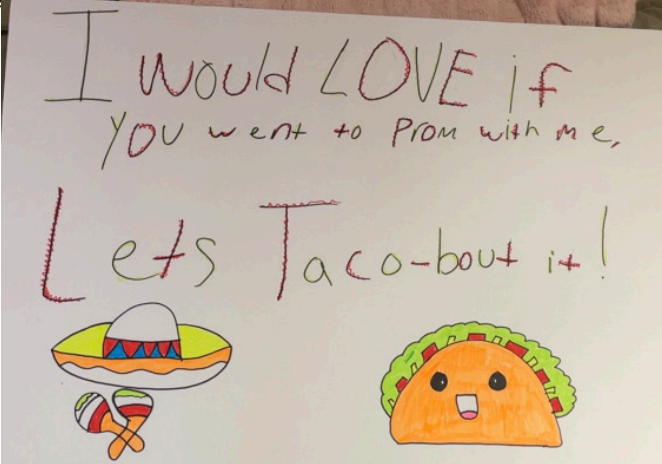 I would LOVE if
YOU went to Prom with me,
Lets Taco-bout it!